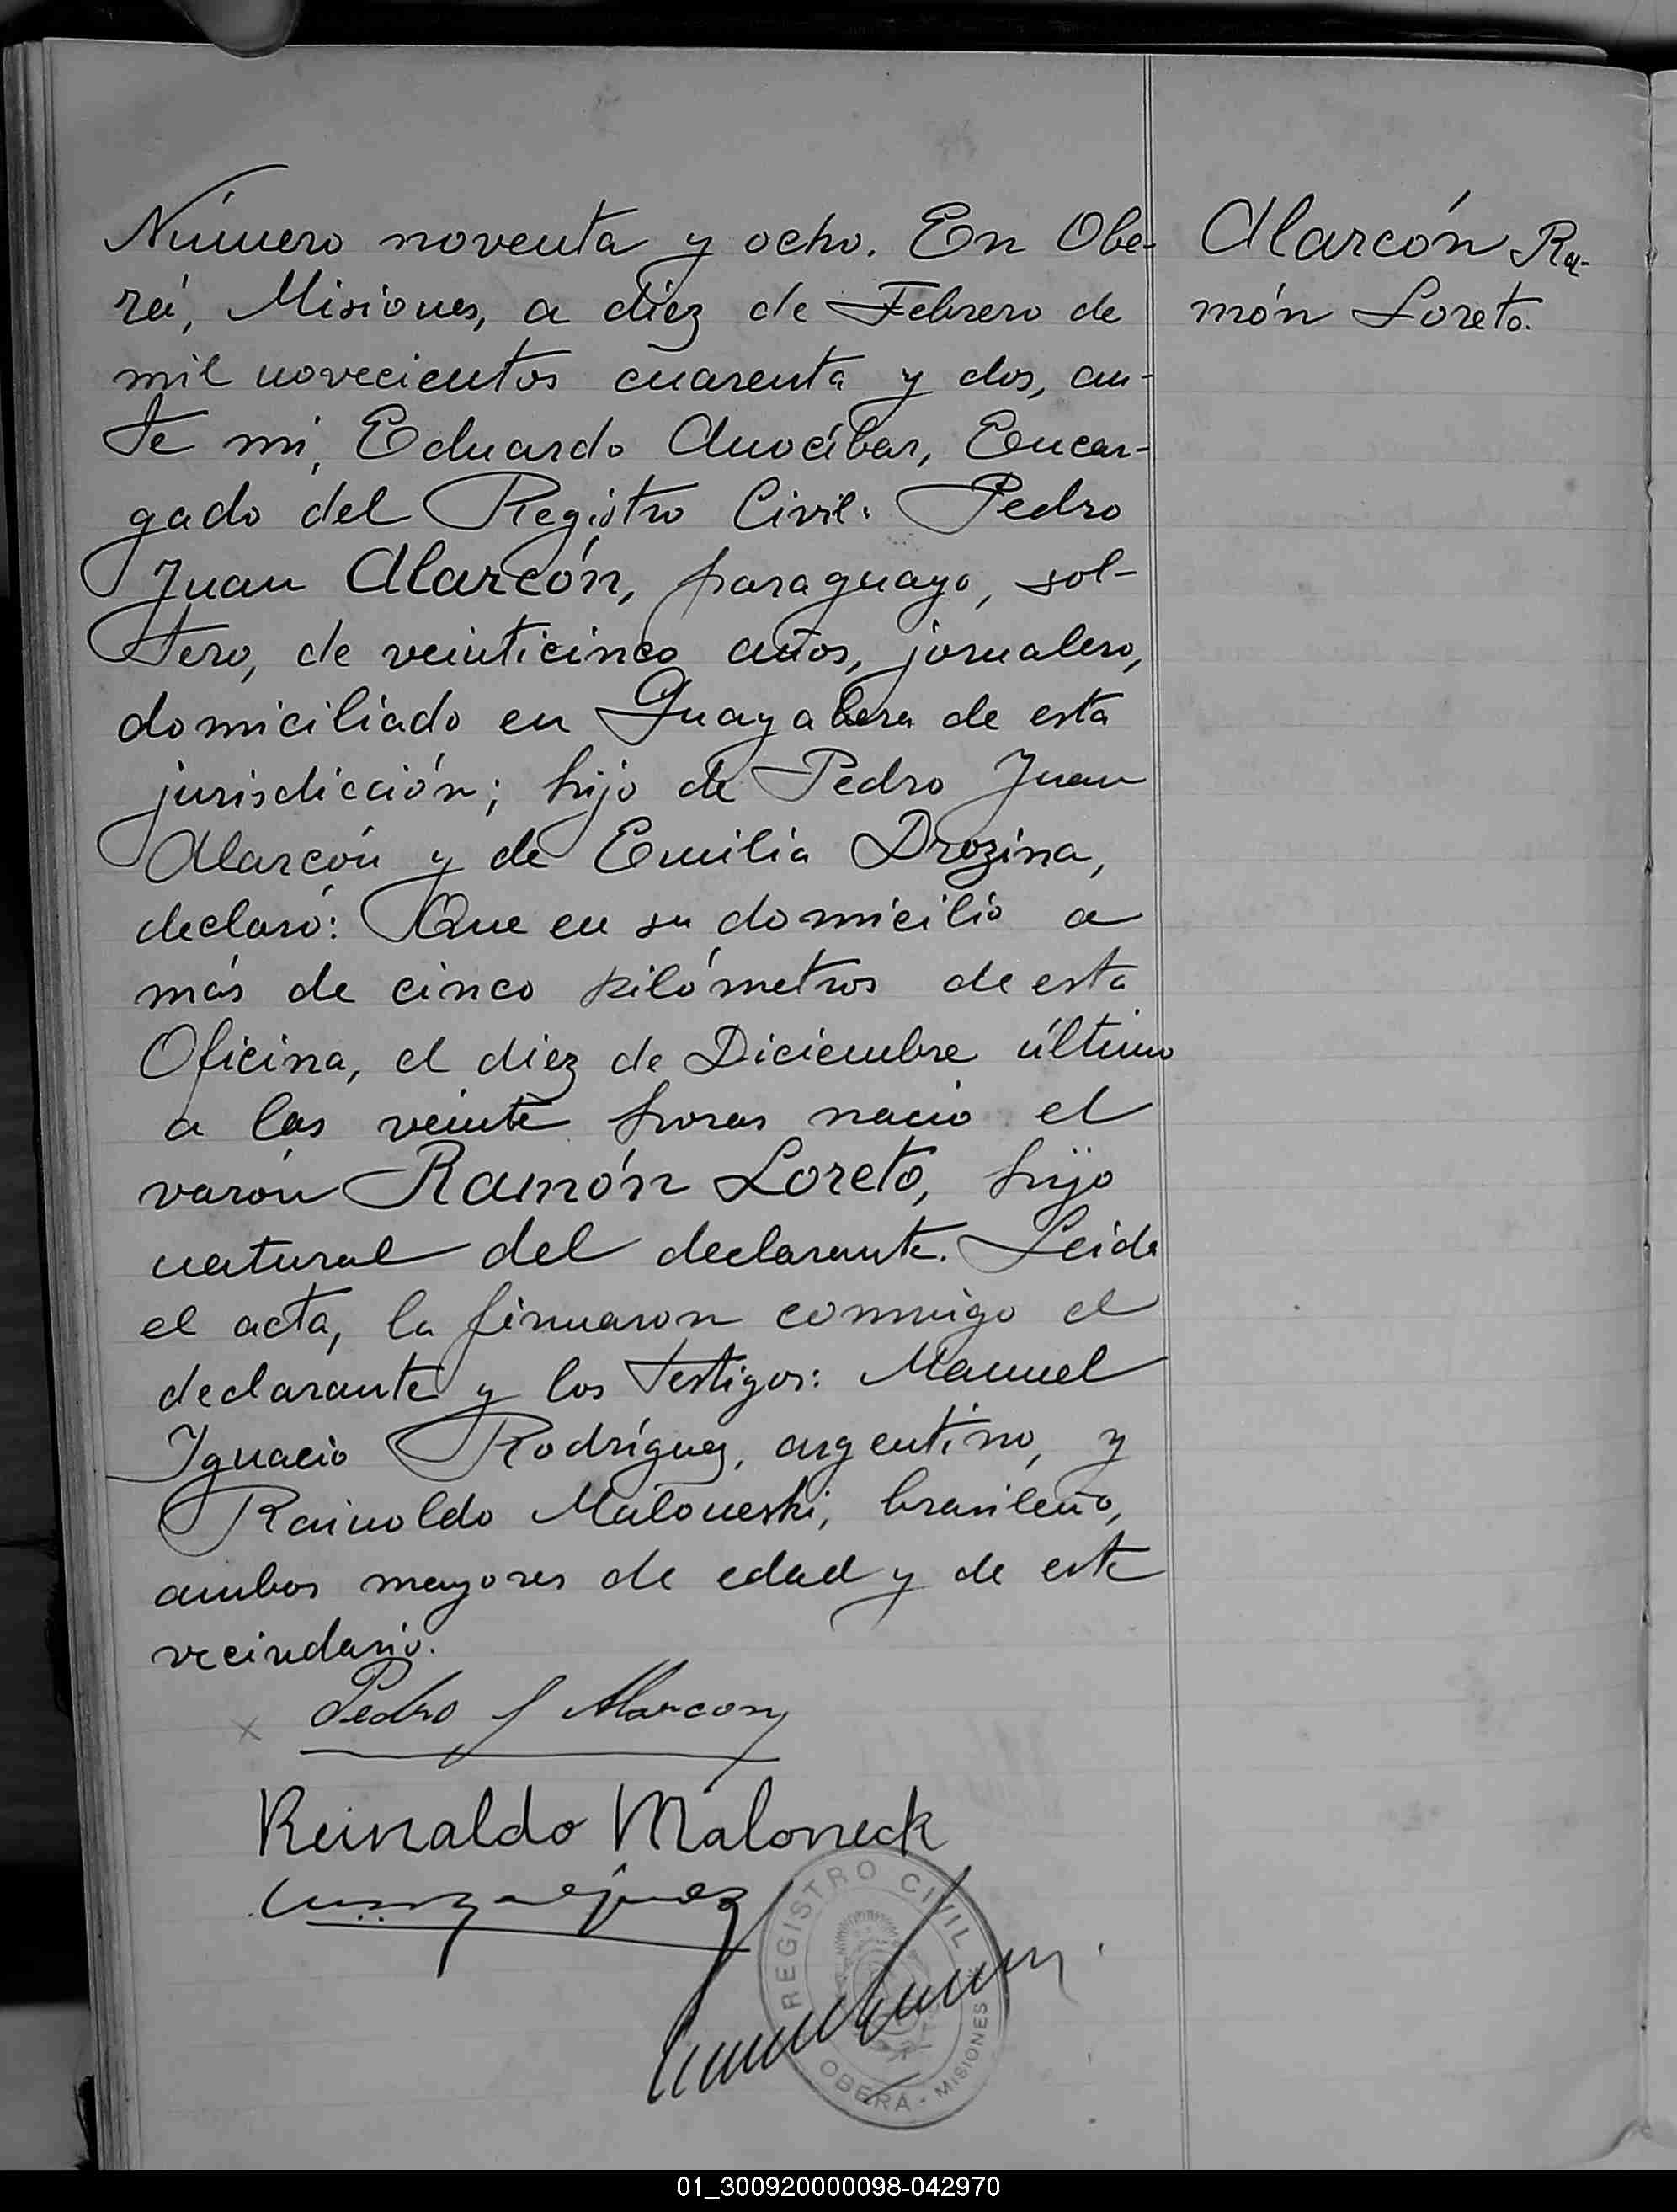 Número noventa y ocho. En Obe-
rá, Misiones, a diez de Febrero de
mil novecientos cuarenta y dos, an-
te mi, Eduardo Anocíbar, Encar-
gado del Registro Civil: Pedro
Juan Alarcón, paraguayo, sol-
tero, de veinticinco años, jornalero,
domiciliado en Guayabera de esta
jurisdicción; hijo de Pedro Juan
Alarcón y de Emilia Drozina,
declaró: Que en su domicilio a
más de cinco kilómetros de esta
Oficina, el diez de Diciembre último
a las veinte horas nació el
varón Ramón Loreto, hijo
natural del declarante. Leída
el acta, la firmaron conmigo el
declarante y los testigos: Manuel
Ignacio Rodríguez, argentino, y
Rainoldo Maloneski, brasileño,
ambos mayores de edad y de este
vecindario.
Alarcón Ra-
món Loreto.
Pedro J Alarcon
Reinaldo Maloneck
REGISTRO CIVIL
OBERÁ - MISIONES
01_300920000098-042970